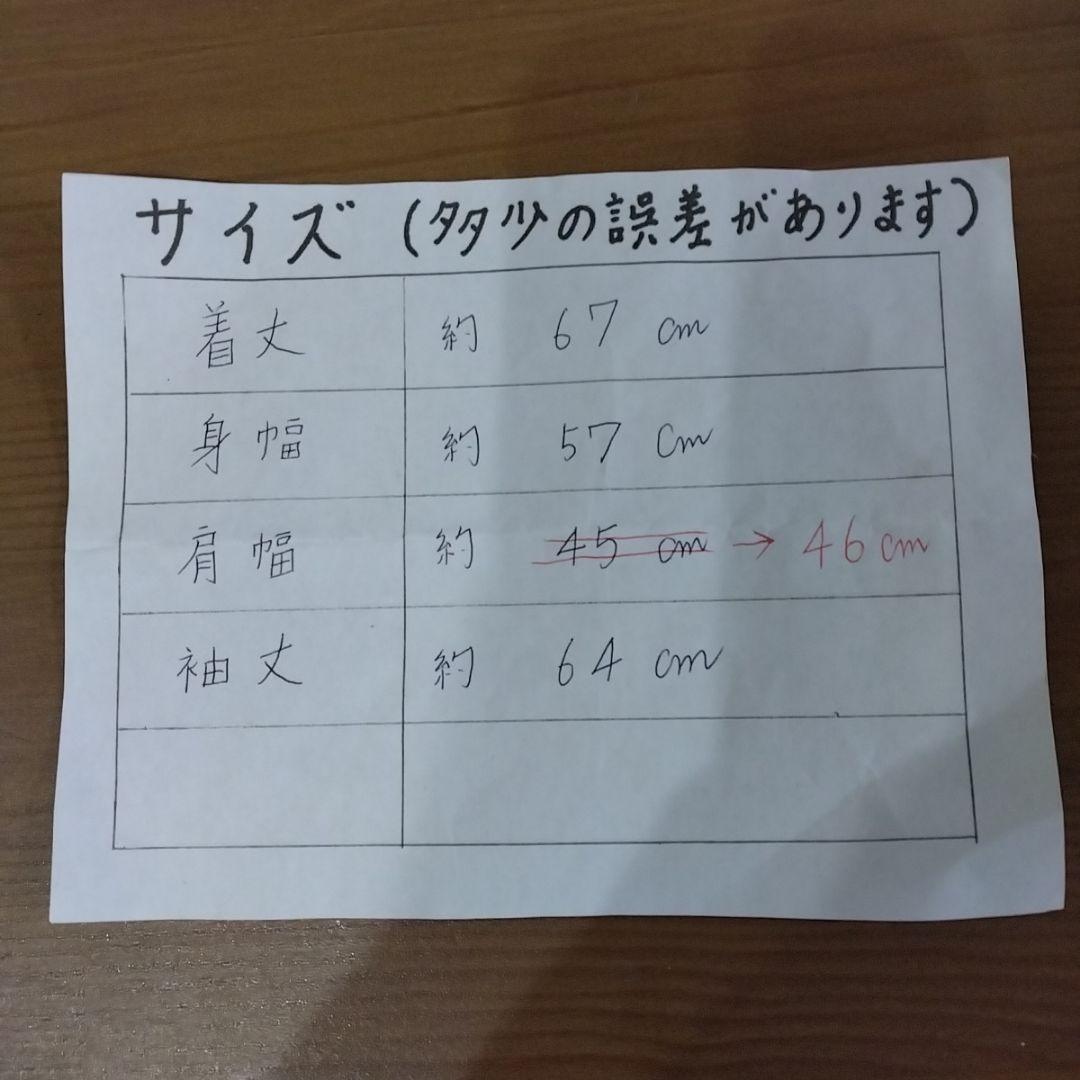 サイズ (多少の誤差があります)
着丈 約 67 cm
身幅 約 57 cm
肩幅 約 45 cm → 46 cm
袖丈 約 64 cm